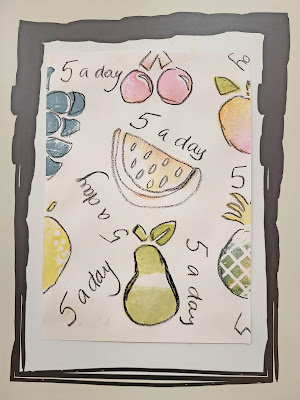 5 a day
5 a day
5 a day
5 a day
5 a day
5
5
y